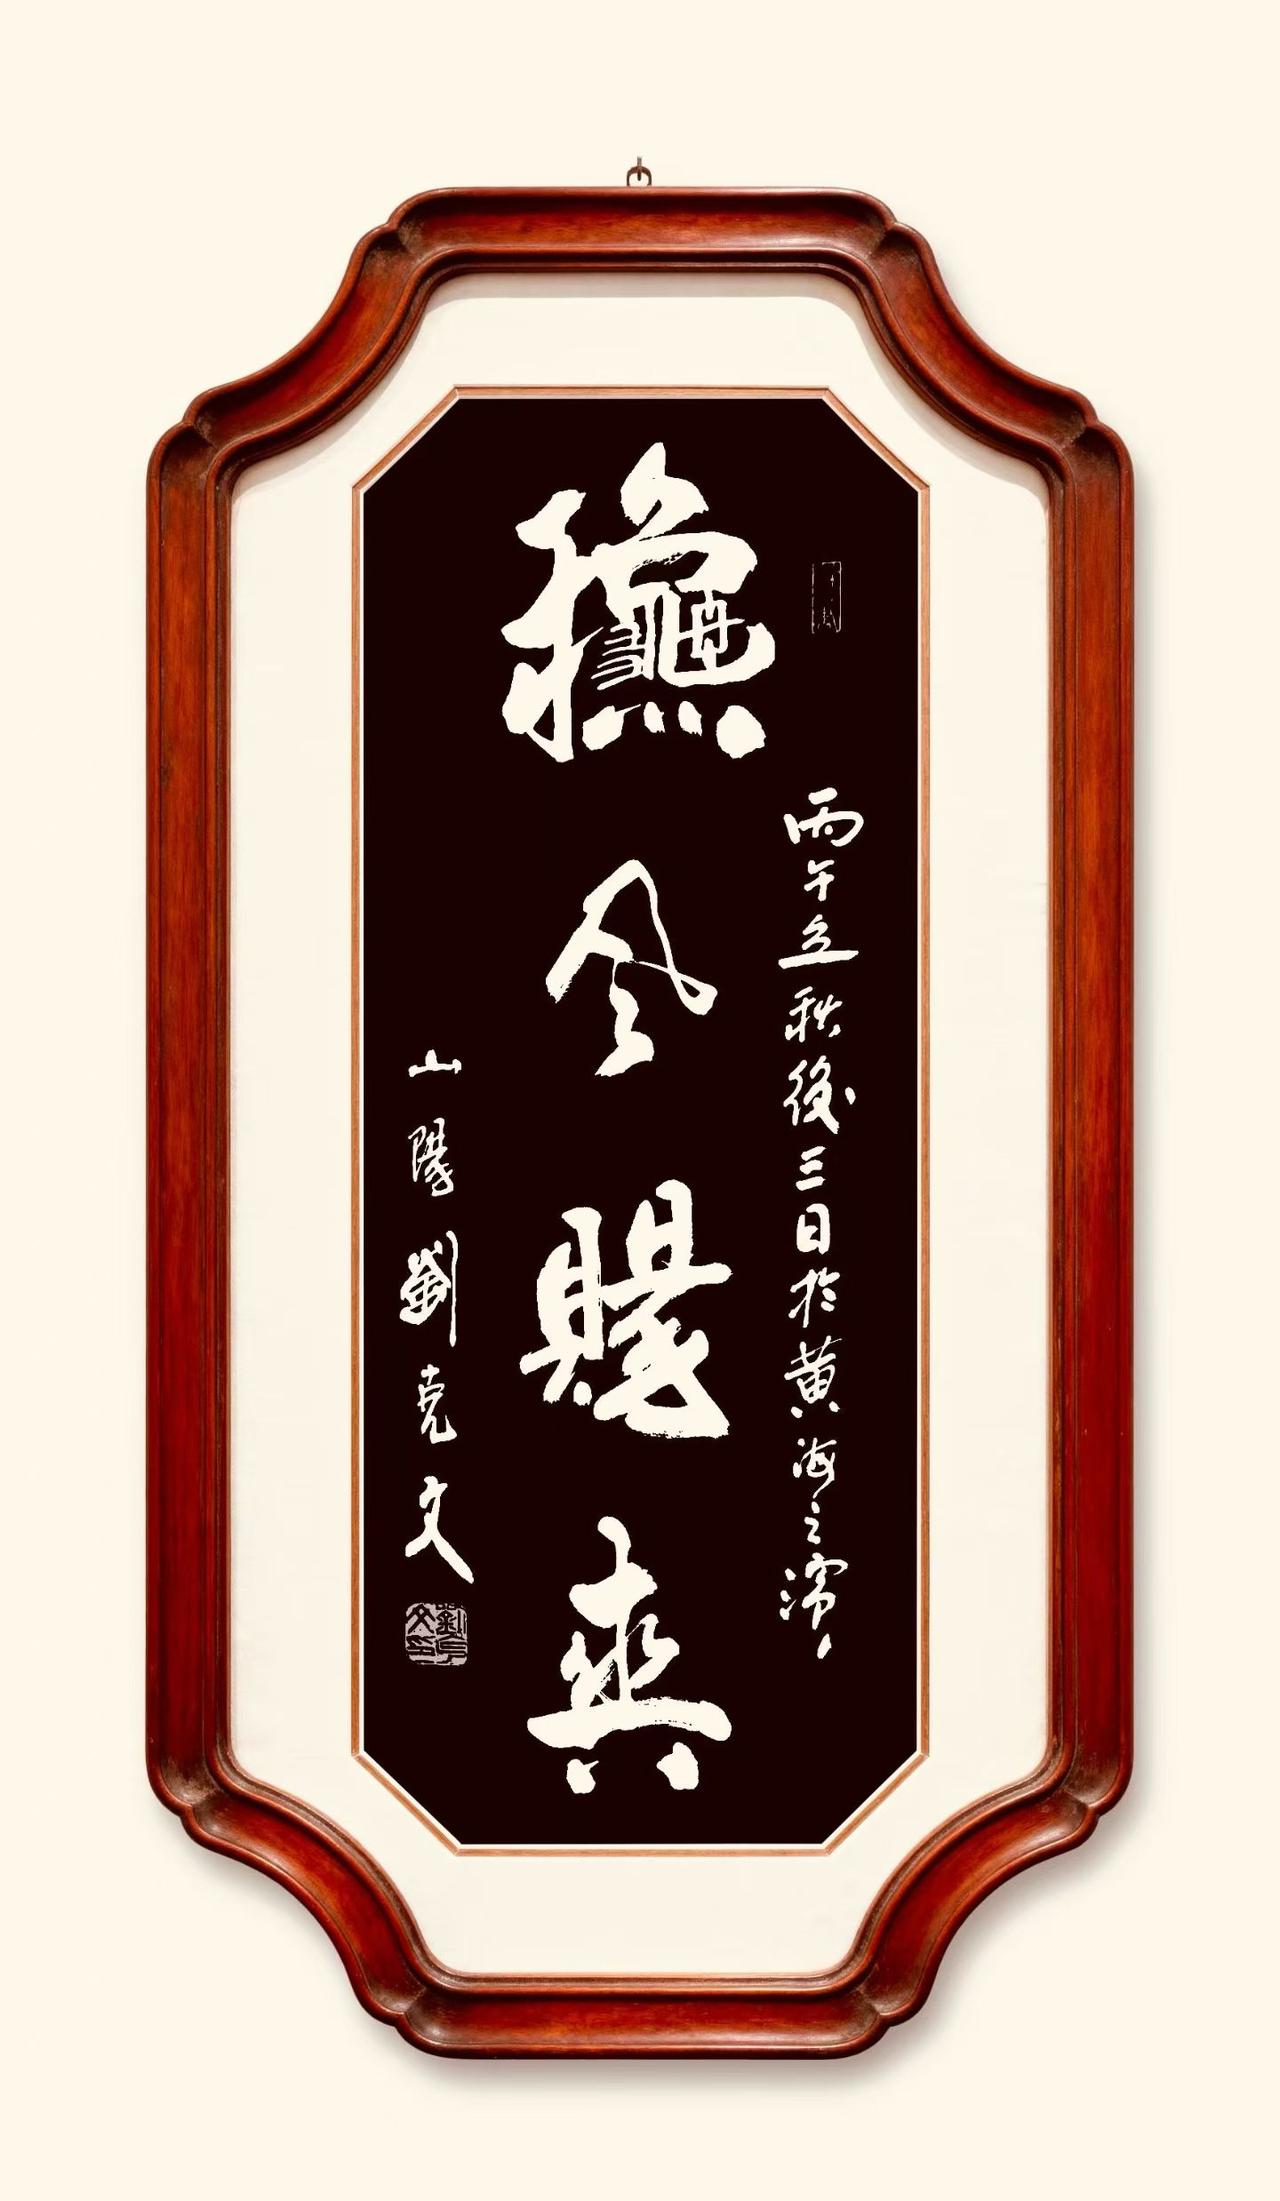 丙午立秋後三日於黄海之濱
龝风賜爽
山陽劉克文
劉克文印